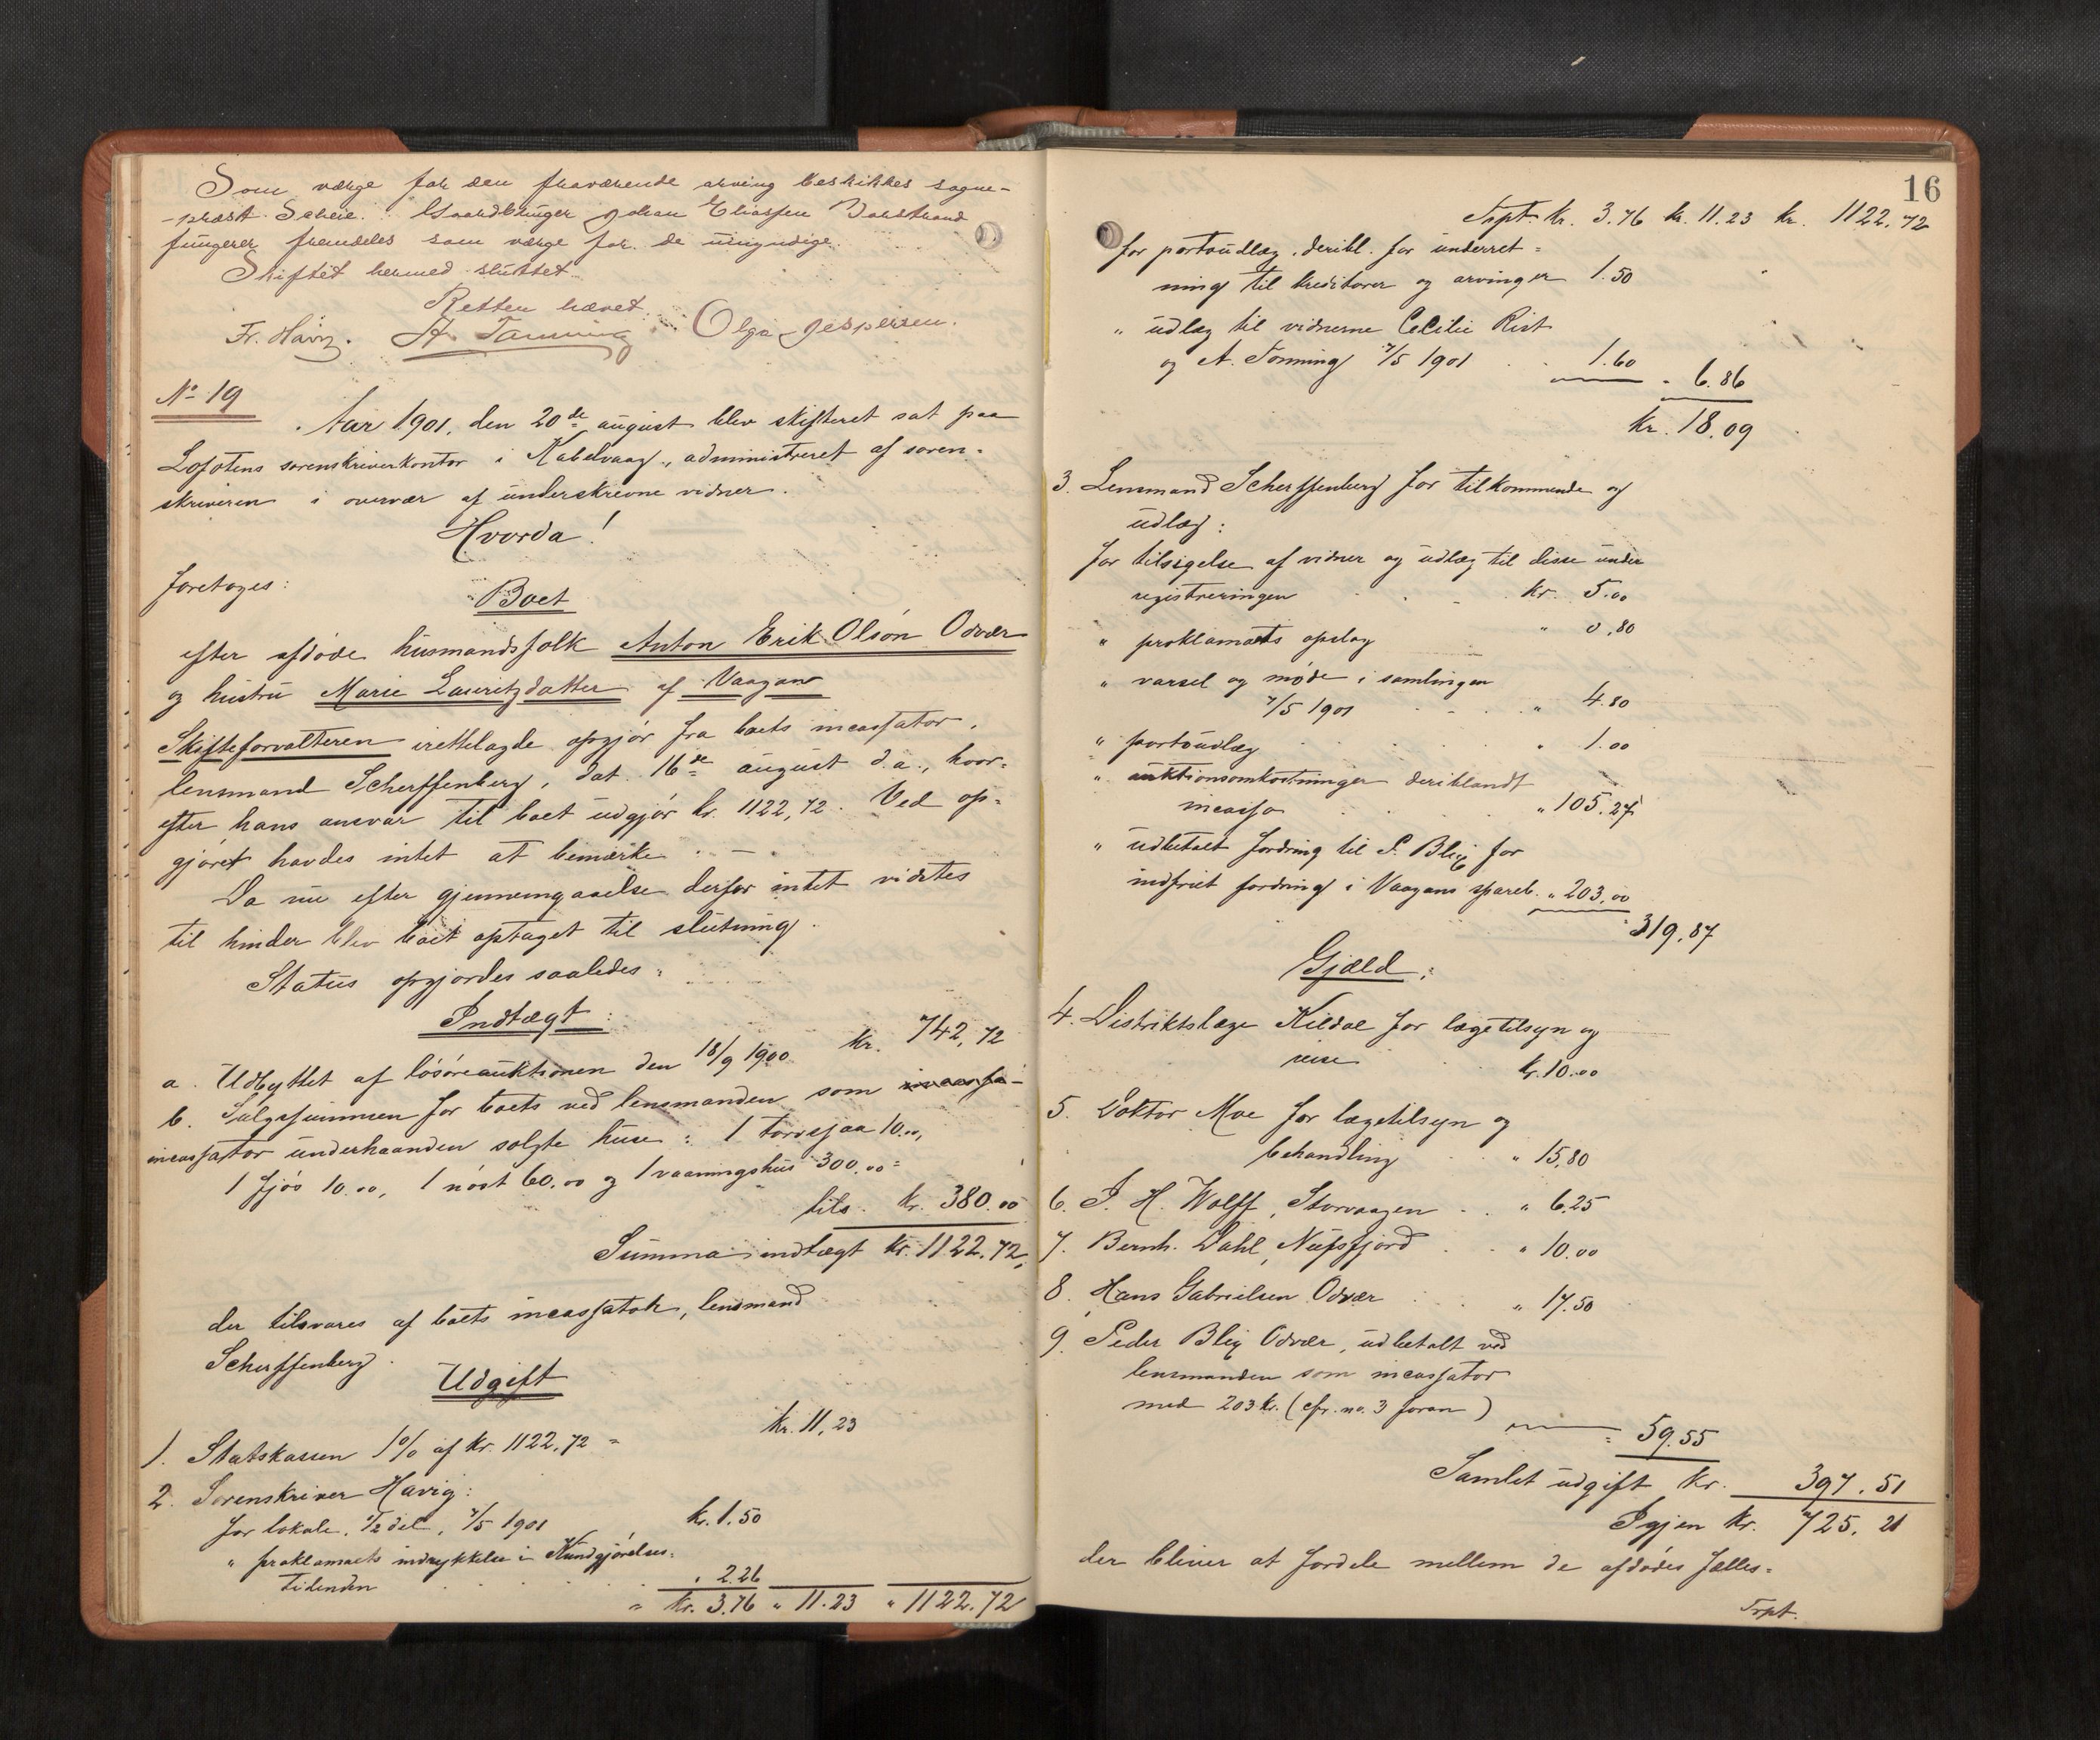 Som værge for den fraværende arving beskikkes sogne-
-præst Scheie. Gaardbruger Johan Eliassen Barstrand
fungerer fremdeles som værge for de umyndige.
Skiftet hermed sluttet.
Retten hævet.
Fr. Havig. A. Tønning Olga Jespersen.
No 19
Aar 1901, den 20de august blev skifteret sat paa
Lofotens sorenskriverkontor i Kabelvaag, administreret af soren-
skriveren i overvær af underskrevne vidner.
Hvorda!
foretoges:
Boet
efter afdøde husmandsfolk Anton Erik Olsön Odvær
og hustru Marie Lauritzdatter af Vaagan
Skifteforvalteren irettelagde opgjør fra boets incassator,
lensmand Scherffenberg, dat. 16de august d.a., hvor-
efter hans ansvar til boet udgjør kr. 1122,72. Ved op-
gjøret havdes intet at bemærke. -
Da nu efter gjennemgaaelse derfor intet vidstes
til hinder blev boet optaget til slutning.
Status opgjordes saaledes:
Indtægt:
a. Udbyttet af løsøreauktionen den 18/9 1900 kr. 742,72
b. Salgssummen for boets ved lensmanden som incassa-
incassator underhaanden solgte huse: 1 torvsjaa 10.00,
1 fjøs 10.00, 1 nøst 60.00 og 1 vaaningshus 300.00 =
tils. kr. 380.00
Summa indtægt kr. 1122.72,
der tilsvares af boets incassator, lensmand
Scherffenberg.
Udgift
1. Statskassen 1% af kr. 1122,72 = kr. 11,23
2. Sorenskriver Havig:
for lokale, 1/2 del, 7/5 1901 kr. 1.50
" proklamaets indrykkelse i Kundgjørelses-
tidenden " 2.26
= kr. 3.76 " 11.23 " 1122.72
16
Trspt. kr. 3.76 kr. 11.23 kr. 1122.72
for portoudlæg, deribl. for underret-
ning til kreditorer og arvinger 1.50
" udlæg til vidnerne Cecilie Rist
og A. Tønning 7/5 1901 1.60 = 6.86
kr. 18.09
3. Lensmand Scherffenberg for tilkommende og
udlæg:
for tilsigelse af vidner og udlæg til disse under
registreringen kr. 5.00
" proklamaets opslag " 0.80
" varsel og møde i samlingen
7/5 1901 " 4.80
" portoudlæg " 1.00
" auktionsomkostninger deriblandt
incasso " 105.27
" udbetalt fordring til P. Blix for
indfriet fordring i Vaagans spareb. " 203,00
" 319,87
Gjæld:
4. Distriktslæge Kildal for lægetilsyn og
reise kr. 10.00
5. Doktor Moe for lægetilsyn og
behandling " 15,80
6. J. H. Wolff, Storvaagen " 6.25
7. Bernh. Dahl, Nufsfjord " 10.00
8. Hans Gabrielsen Odvær " 17.50
9. Peder Blix Odvær, udbetalt ved
lensmanden som incassator
med 203 kr. (cfr. no. 3 foran)
= 59.55
Samlet udgift kr. 397.51
Igjen kr. 725.21
der bliver at fordele mellem de afdødes fælles-
Trspt.